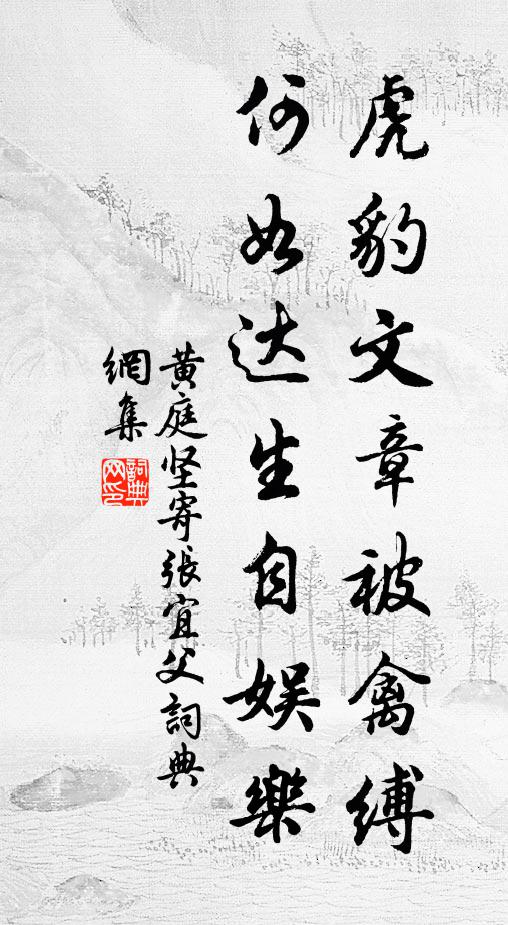 虎豹文章被禽缚
何如达生自娱樂
黄庭坚寄張宜父詞典
網集
詞典
网印